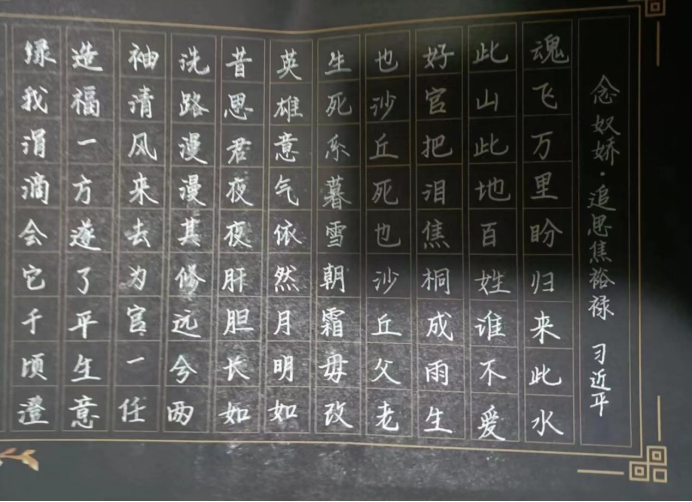 念奴娇·追思焦裕禄 习近平
魂飞万里盼归来此水
此山此地百姓谁不爱
好官把泪焦桐成雨生
也沙丘死也沙丘父老
生死系暮雪朝霜毋改
英雄意气依然月明如
昔思君夜夜肝胆长如
洗路漫漫其修远兮两
袖清风来去为官一任
造福一方遂了平生意
绿我涓滴会它千顷澄